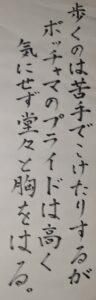 歩くのは苦手でこけたりするが
ポッチャマのプライドは高く
気にせず堂々と胸をはる。